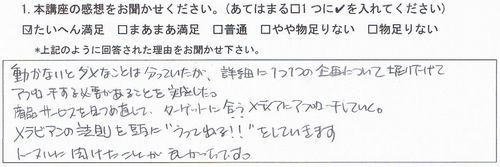 1. 本講座の感想をお聞かせください。(あてはまる□1つに✔を入れてください)
☑たいへん満足 □まあまあ満足 □普通 □やや物足りない □物足りない
*上記のように回答された理由をお聞かせ下さい。
動かないとダメなことは分っていたが、詳細に1つ1つの企画について掘り下げて
アプローチする必要があることを実感した。
商品サービスを見つめ直して、ターゲットに合うメディアにアプローチしていく。
メラビアンの法則を頭に"うってねる!!"をしていきます
トータルに聞けたことが良かったです。